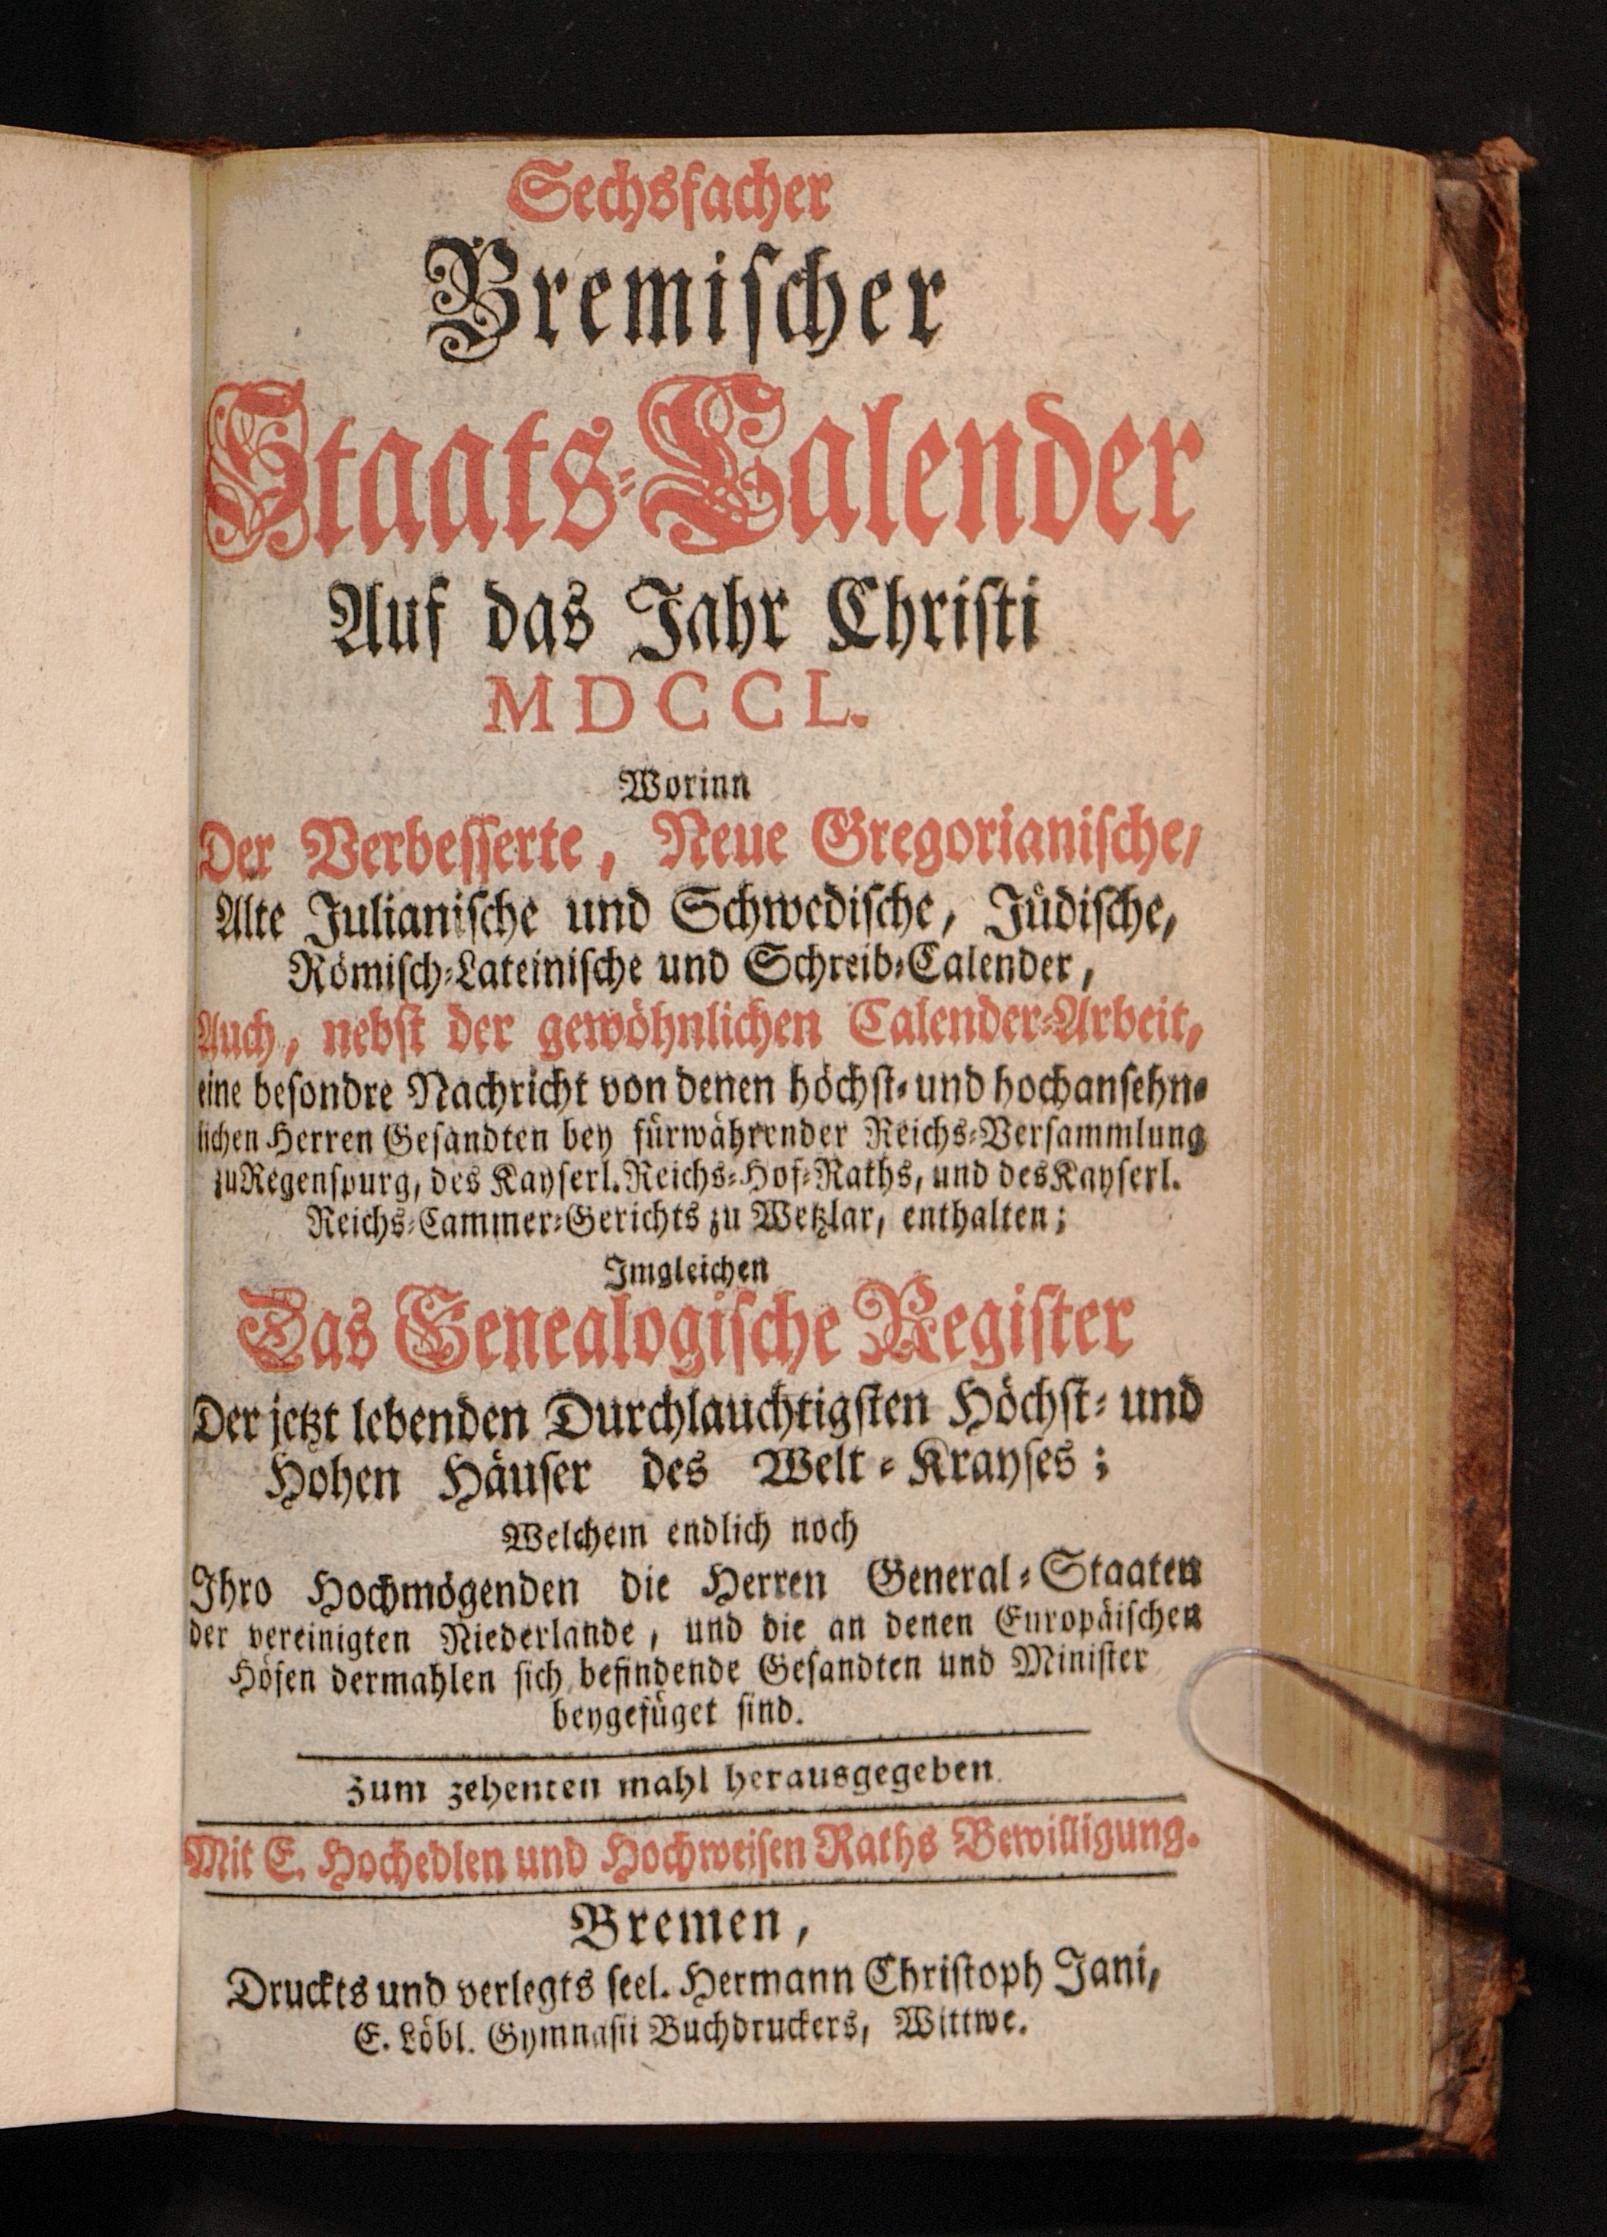 Sechsfacher
Bremischer
Staats-Calender
Auf das Jahr Christi
MDCCL.
Worinn
Der Verbesserte, Neue Gregorianische,
Alte Julianische und Schwedische, Jüdische,
Römisch-Lateinische und Schreib-Calender,
Auch, nebst der gewöhnlichen Calender-Arbeit,
eine besondre Nachricht von denen höchst- und hochansehn-
lichen Herren Gesandten bey fürwährender Reichs-Versammlung
zu Regenspurg, des Kayserl. Reichs-Hof-Raths, und des Kayserl.
Reichs-Cammer-Gerichts zu Wetzlar, enthalten;
Imgleichen
Das Genealogische Register
Der jetzt lebenden Durchlauchtigsten Höchst- und
Hohen Häuser des Welt-Krayses;
Welchem endlich noch
Ihro Hochmögenden die Herren General-Staaten
der vereinigten Niederlande, und die an denen Europäischen
Höfen dermahlen sich befindende Gesandten und Minister
beygefüget sind.
Zum zehenten mahl herausgegeben.
Mit E. Hochedlen und Hochweisen Raths Bewilligung.
Bremen,
Druckts und verlegts seel. Hermann Christoph Jani,
E. Löbl. Gymnasii Buchdruckers, Wittwe.